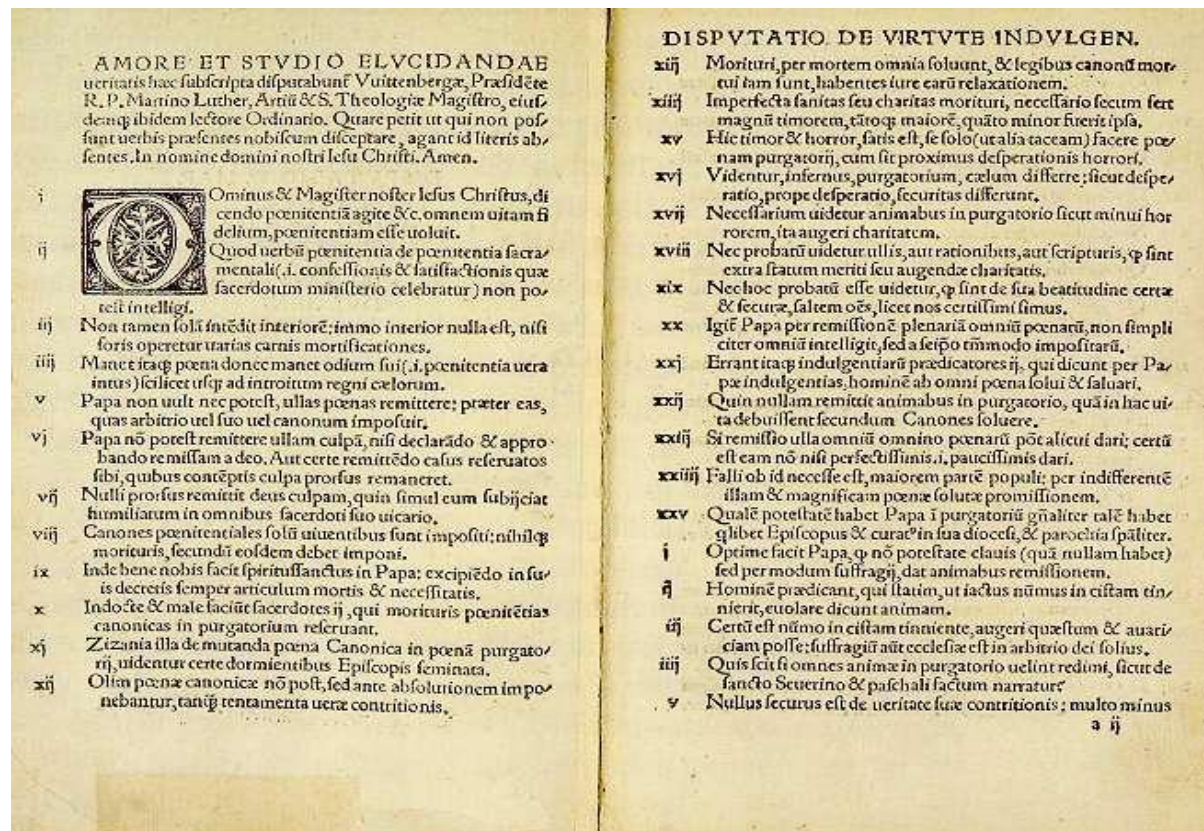 AMORE ET STVDIO ELVCIDANDAE
ueritatis hæc subscripta disputabunt̃ Vuittenbergæ, Præsidẽte
R. P. Martino Luther, Artiũ & S. Theologiæ Magistro, eius-
demq; ibidem lectore Ordinario. Quare petit ut qui non pos-
sunt uerbis præsentes nobiscum disceptare, agant id literis ab-
sentes. In nomine domini nostri Iesu Christi. Amen.
i DOminus & Magister noster Iesus Christus, di
cendo pœnitentiã agite &c. omnem uitam fi
delium, pœnitentiam esse uoluit.
ij Quod uerbũ pœnitentia de pœnitentia sacra-
mentali (.i. confessionis & satisfactionis quæ
sacerdotum ministerio celebratur) non po-
test intelligi.
iij Non tamen solã intẽdit interiorẽ: immo interior nulla est, nisi
foris operetur uarias carnis mortificationes.
iiij Manet itaq; pœna donec manet odium sui (.i. pœnitentia uera
intus) scilicet usq; ad introitum regni cælorum.
v Papa non uult nec potest, ullas pœnas remittere: præter eas,
quas arbitrio uel suo uel canonum imposuit.
vj Papa nõ potest remittere ullam culpã, nisi declarãdo & appro-
bando remissam a deo. Aut certe remittẽdo casus reseruatos
sibi, quibus contẽptis culpa prorsus remaneret.
vij Nulli prorsus remittit deus culpam, quin simul eum subijciat
humiliatum in omnibus sacerdoti suo uicario.
viij Canones pœnitentiales solũ uiuentibus sunt impositi: nihilq;
morituris, secundũ eosdem debet imponi.
ix Inde bene nobis facit spiritussanctus in Papa: excipiẽdo in su-
is decretis semper articulum mortis & necessitatis.
x Indocte & male faciũt sacerdotes ij, qui morituris pœnitẽtias
canonicas in purgatorium reseruant.
xj Zizania illa de mutanda pœna Canonica in pœnã purgato-
rij, uidentur certe dormientibus Episcopis seminata.
xij Olim pœnæ canonicæ nõ post, sed ante absolutionem impo-
nebantur, tanq̃ tentamenta ueræ contritionis.
DISPVTATIO DE VIRTVTE INDVLGEN.
xiij Morituri, per mortem omnia soluunt, & legibus canonũ mor-
tui iam sunt, habentes iure earũ relaxationem.
xiiij Imperfecta sanitas seu charitas morituri, necessario secum fert
magnũ timorem, tãtoq; maiorẽ, quãto minor fuerit ipsa.
xv Hic timor & horror, satis est, se solo (ut alia taceam) facere pœ-
nam purgatorij, cum sit proximus desperationis horrori.
xvj Videntur, infernus, purgatorium, cælum differre: sicut despe-
ratio, prope desperatio, securitas differunt.
xvij Necessarium uidetur animabus in purgatorio sicut minui hor
rorem, ita augeri charitatem.
xviij Nec probatũ uidetur ullis, aut rationibus, aut scripturis, ꝙ sint
extra statum meriti seu augendæ charitatis.
xix Nec hoc probatũ esse uidetur, ꝙ sint de sua beatitudine certæ
& securæ, saltem oẽs, licet nos certissimi simus.
xx Igit̃ Papa per remissionẽ plenariã omniũ pœnarũ, non simpli
citer omniũ intelligit, sed a seip̃o tm̃modo impositarũ.
xxj Errant itaq; indulgentiarũ prædicatores ij, qui dicunt per Pa-
pæ indulgentias, hominẽ ab omni pœna solui & saluari.
xxij Quin nullam remittit animabus in purgatorio, quã in hac ui-
ta debuissent secundum Canones soluere.
xxiij Si remissio ulla omniũ omnino pœnarũ põt alicui dari: certũ
est eam nõ nisi perfectissimis .i. paucissimis dari.
xxiiij Falli ob id necesse est, maiorem partẽ populi: per indifferentẽ
illam & magnificam pœnæ solutæ promissionem.
xxv Qualẽ potestatẽ habet Papa ĩ purgatoriũ gñaliter talẽ habet
q̃libet Episcopus & curatꝰ in sua diocesi, & parochia sp̃aliter.
i Optime facit Papa, ꝙ nõ potestate clauis (quã nullam habet)
sed per modum suffragij, dat animabus remissionem.
ij Hominẽ prædicant, qui statim, ut iactus nũmus in cistam tin-
nierit, euolare dicunt animam.
iij Certũ est nũmo in cistam tinniente, augeri quæstum & auari-
ciam posse: suffragiũ aut̃ ecclesiæ est in arbitrio dei solius.
iiij Quis scit si omnes animæ in purgatorio uelint redimi, sicut de
sancto Seuerino & paschali factum narratur?
v Nullus securus est de ueritate suæ contritionis: multo minus
a ij